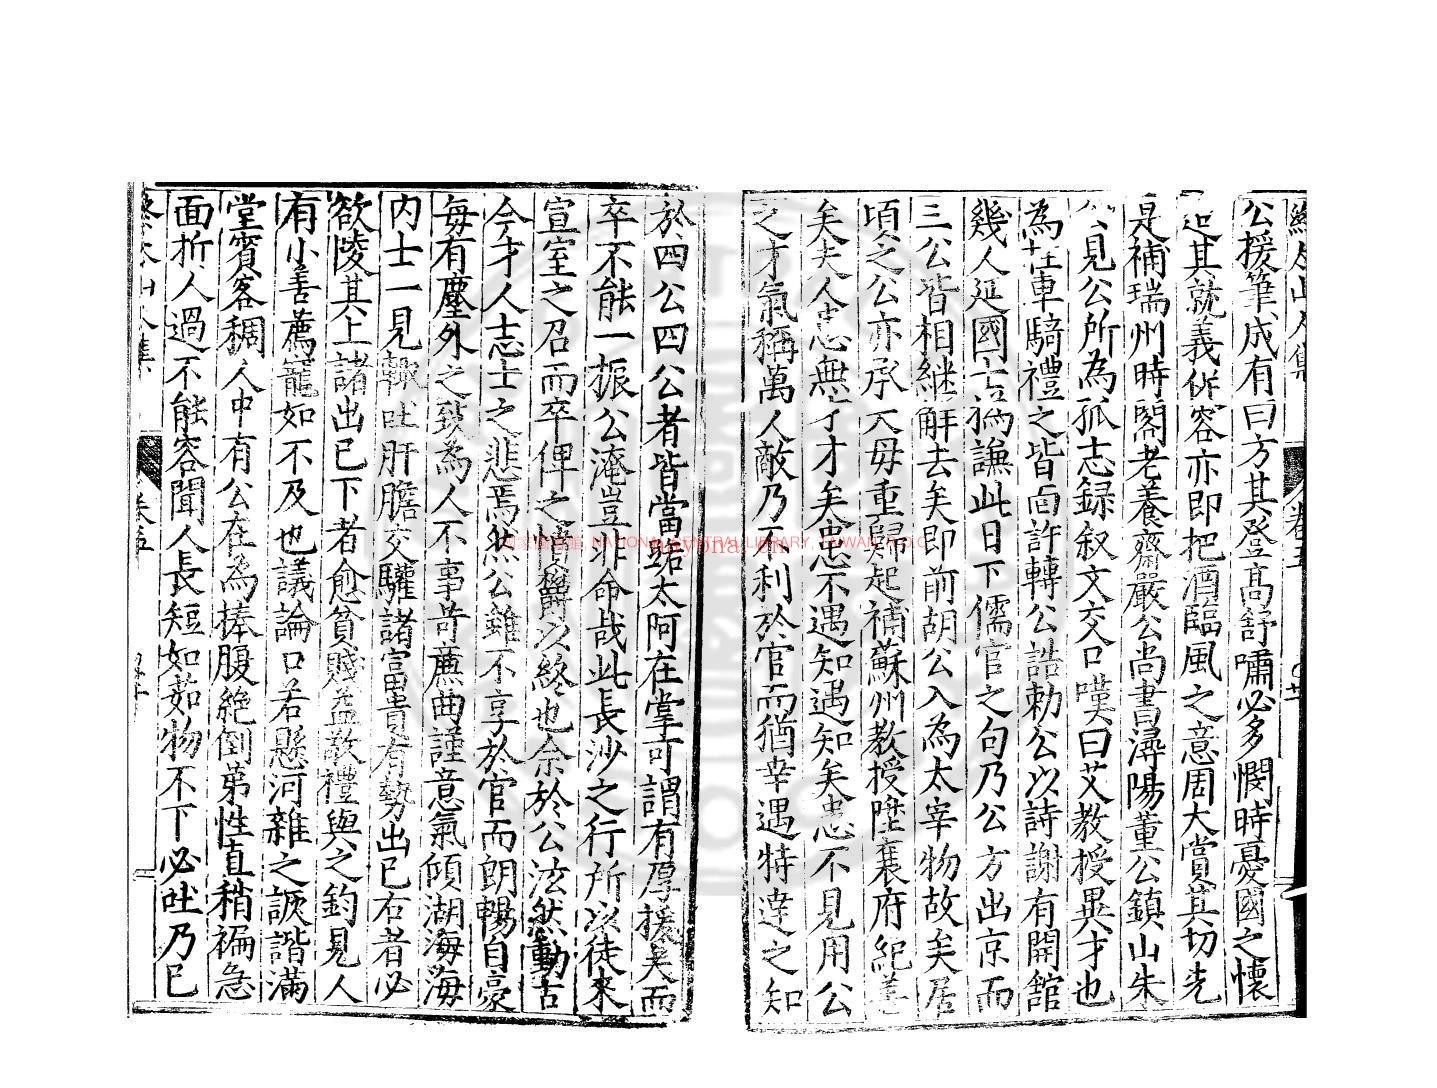 公援筆成有曰方其登高舒嘯必多憫時憂國之懷
迨其就義併容亦即把酒臨風之意周大賞其切先
是補瑞州時閣老養齋嚴公尚書潯陽董公鎮山朱
見公所為孤志録叙文交口嘆曰艾教授異才也
為枉車騎禮之皆面許轉公誥勅公以詩謝有開館
幾人延國士撝謙此日下儒官之句乃公方出京而
三公皆相継解去矣即前胡公入為太宰物故矣居
頃之公亦承大母重歸起補蘇州教授陞襄府紀善
矣夫人患無才才矣患不遇知遇知矣患不見用公
之才氣稱萬人敵乃不利於官而猶幸遇特達之知
於四公四公者皆當路太阿在掌可謂有厚援矣而
卒不能一振公淹豈非命哉此長沙之行所以徒來
宣室之召而卒俾之憤欝以終也余於公泫然動古
今才人志士之悲焉然公雖不享於官而朗暢自豪
每有塵外之致為人不事苛廉曲謹意氣傾湖海海
内士一見輙吐肝膽交驩諸富貴有勢出已右者必
欲陵其上諸出已下者愈貧賤益敬禮與之鈞見人
有小善薦寵如不及也議論口若懸河雜之詼諧滿
堂賓客稠人中有公在為捧腹絶倒第性直稍褊急
面折人過不能容聞人長短如茹物不下必吐乃已
卷五
NATIONAL CENTRAL LIBRARY, TAIWAN, R.O.C